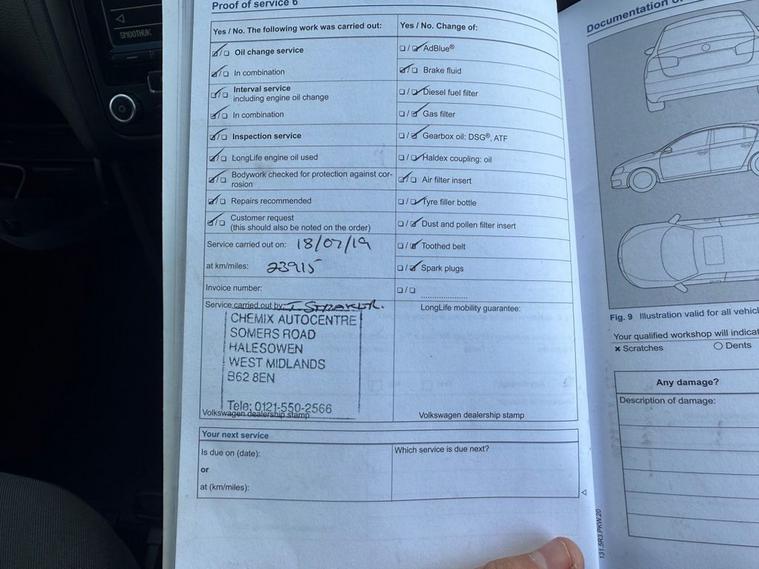 SMOOTHUK
Proof of service 6
Yes / No. The following work was carried out:
☑/❑ Oil change service
☑/❑ In combination
☑/❑ Interval service
including engine oil change
☑/❑ In combination
☑/❑ Inspection service
☑/❑ LongLife engine oil used
☑/❑ Bodywork checked for protection against cor-
rosion
☑/❑ Repairs recommended
☑/❑ Customer request
(this should also be noted on the order)
Service carried out on: 18/07/19
at km/miles: 23915
Invoice number:
Service carried out by: I. STRAKER.
CHEMIX AUTOCENTRE
SOMERS ROAD
HALESOWEN
WEST MIDLANDS
B62 8EN
Tele: 0121-550-2566
Volkswagen dealership stamp
Yes / No. Change of:
❑/☑ AdBlue®
☑/❑ Brake fluid
❑/☑ Diesel fuel filter
❑/☑ Gas filter
❑/☑ Gearbox oil: DSG®, ATF
❑/☑ Haldex coupling: oil
☑/❑ Air filter insert
❑/☑ Tyre filler bottle
❑/☑ Dust and pollen filter insert
❑/☑ Toothed belt
❑/☑ Spark plugs
❑/❑ ....................
LongLife mobility guarantee:
Volkswagen dealership stamp
Your next service
Is due on (date):
or
at (km/miles):
Which service is due next?
Documentation
Fig. 9 Illustration valid for all
Your qualified workshop will
× Scratches ○ Dents
Any damage?
Description of damage:
131.5R3.PKW.20